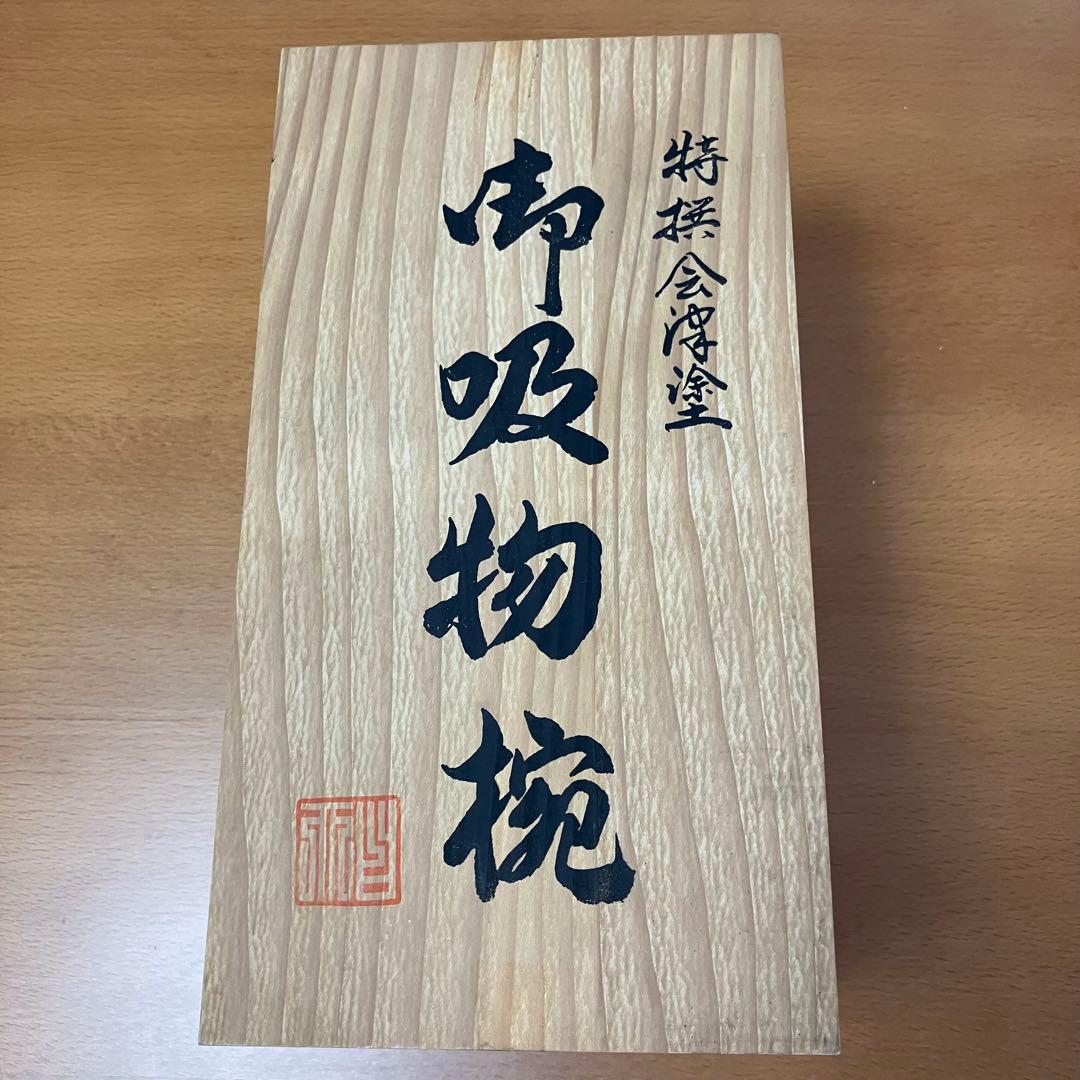 特撰会津塗
御吸物椀